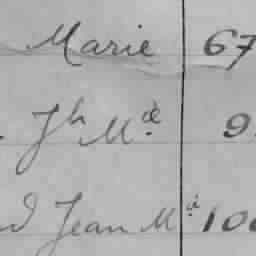 Marie 67
Jh Md 9
d Jean Md 100